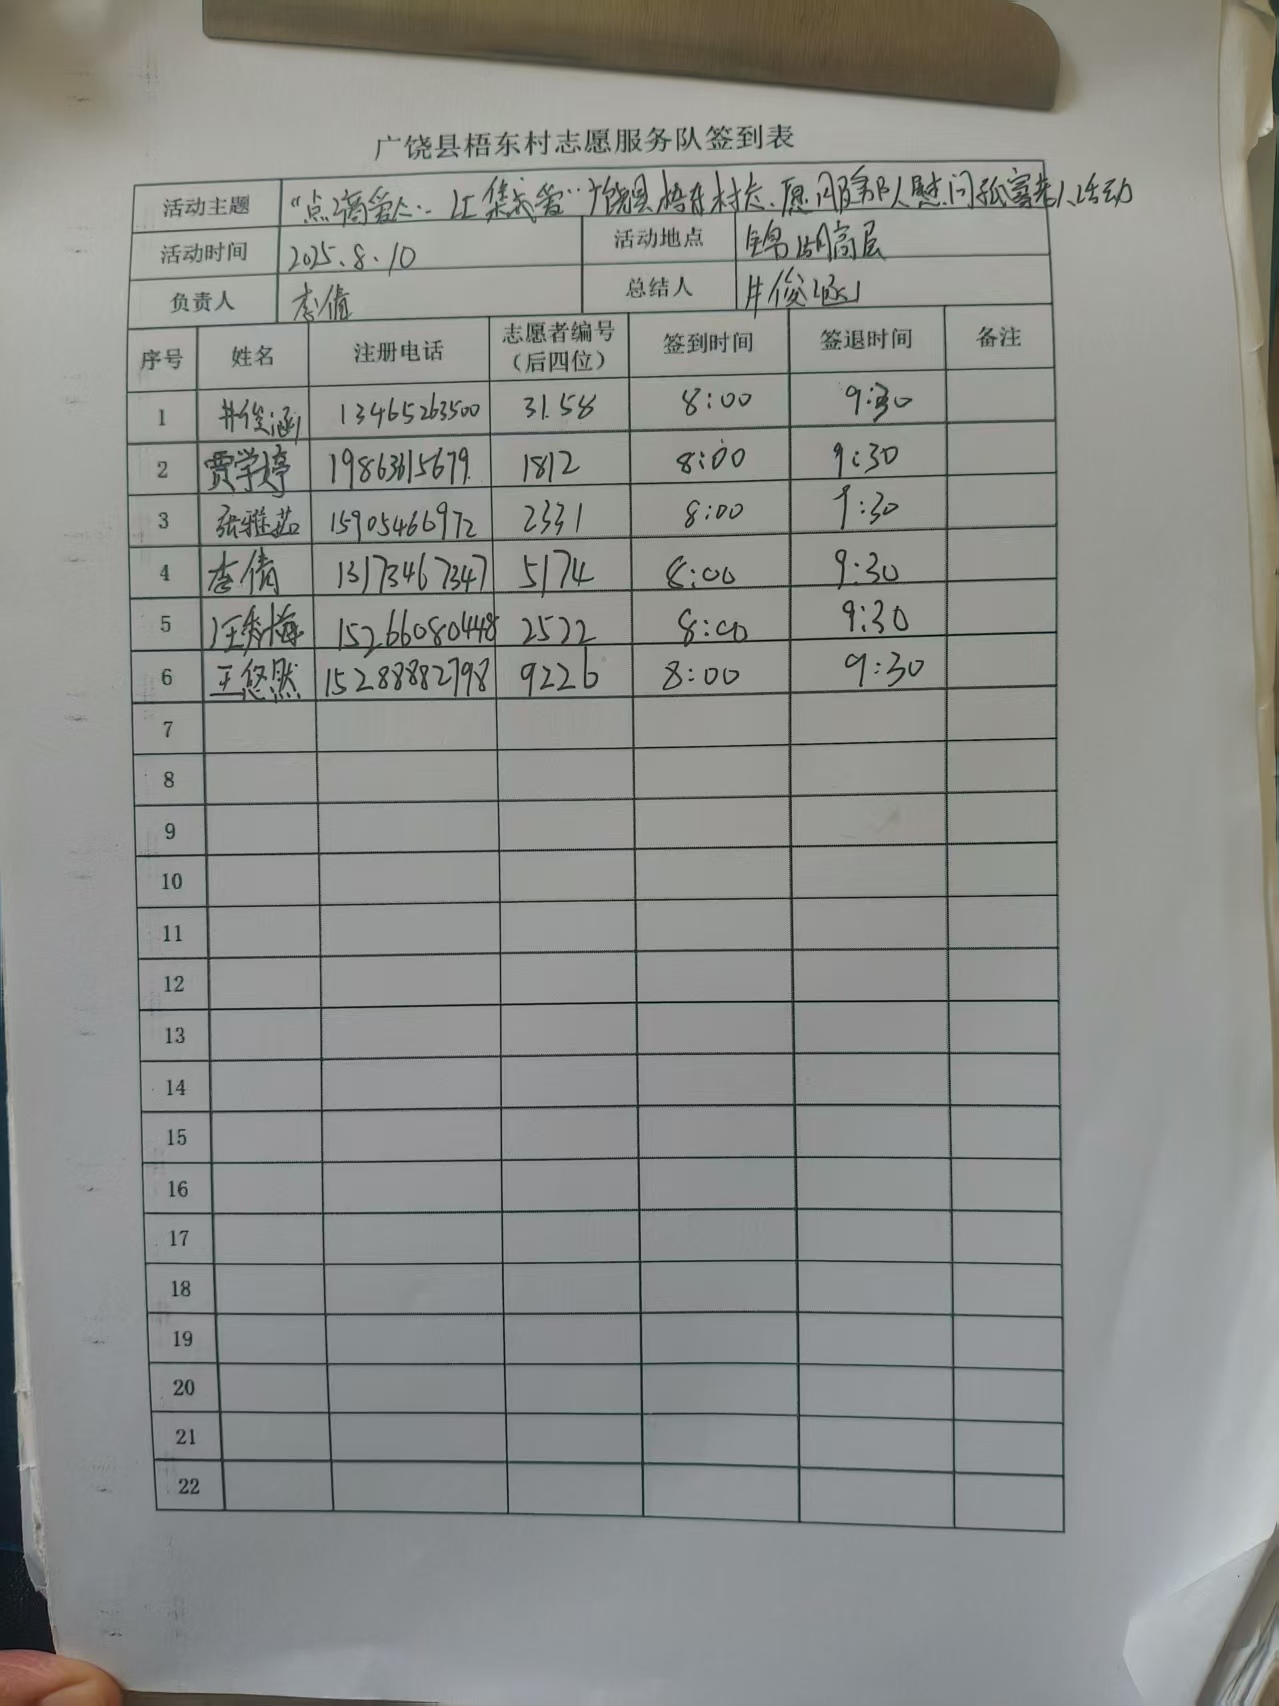 广饶县梧东村志愿服务队签到表
活动主题 “点滴爱心·汇集成爱”广饶县梧东村志愿服务队慰问孤寡老人活动
活动时间 2025.8.10 活动地点 锦湖高层
负责人 李倩 总结人 井俊涵
序号 姓名 注册电话 志愿者编号（后四位） 签到时间 签退时间 备注
1 井俊涵 13465263500 3158 8:00 9:30
2 贾学婷 19863615679 1812 8:00 9:30
3 张雅茹 15905466972 2331 8:00 9:30
4 李倩 13173467347 5174 8:00 9:30
5 汪秀梅 15266080448 2522 8:00 9:30
6 王悠然 15288882798 9226 8:00 9:30
7
8
9
10
11
12
13
14
15
16
17
18
19
20
21
22